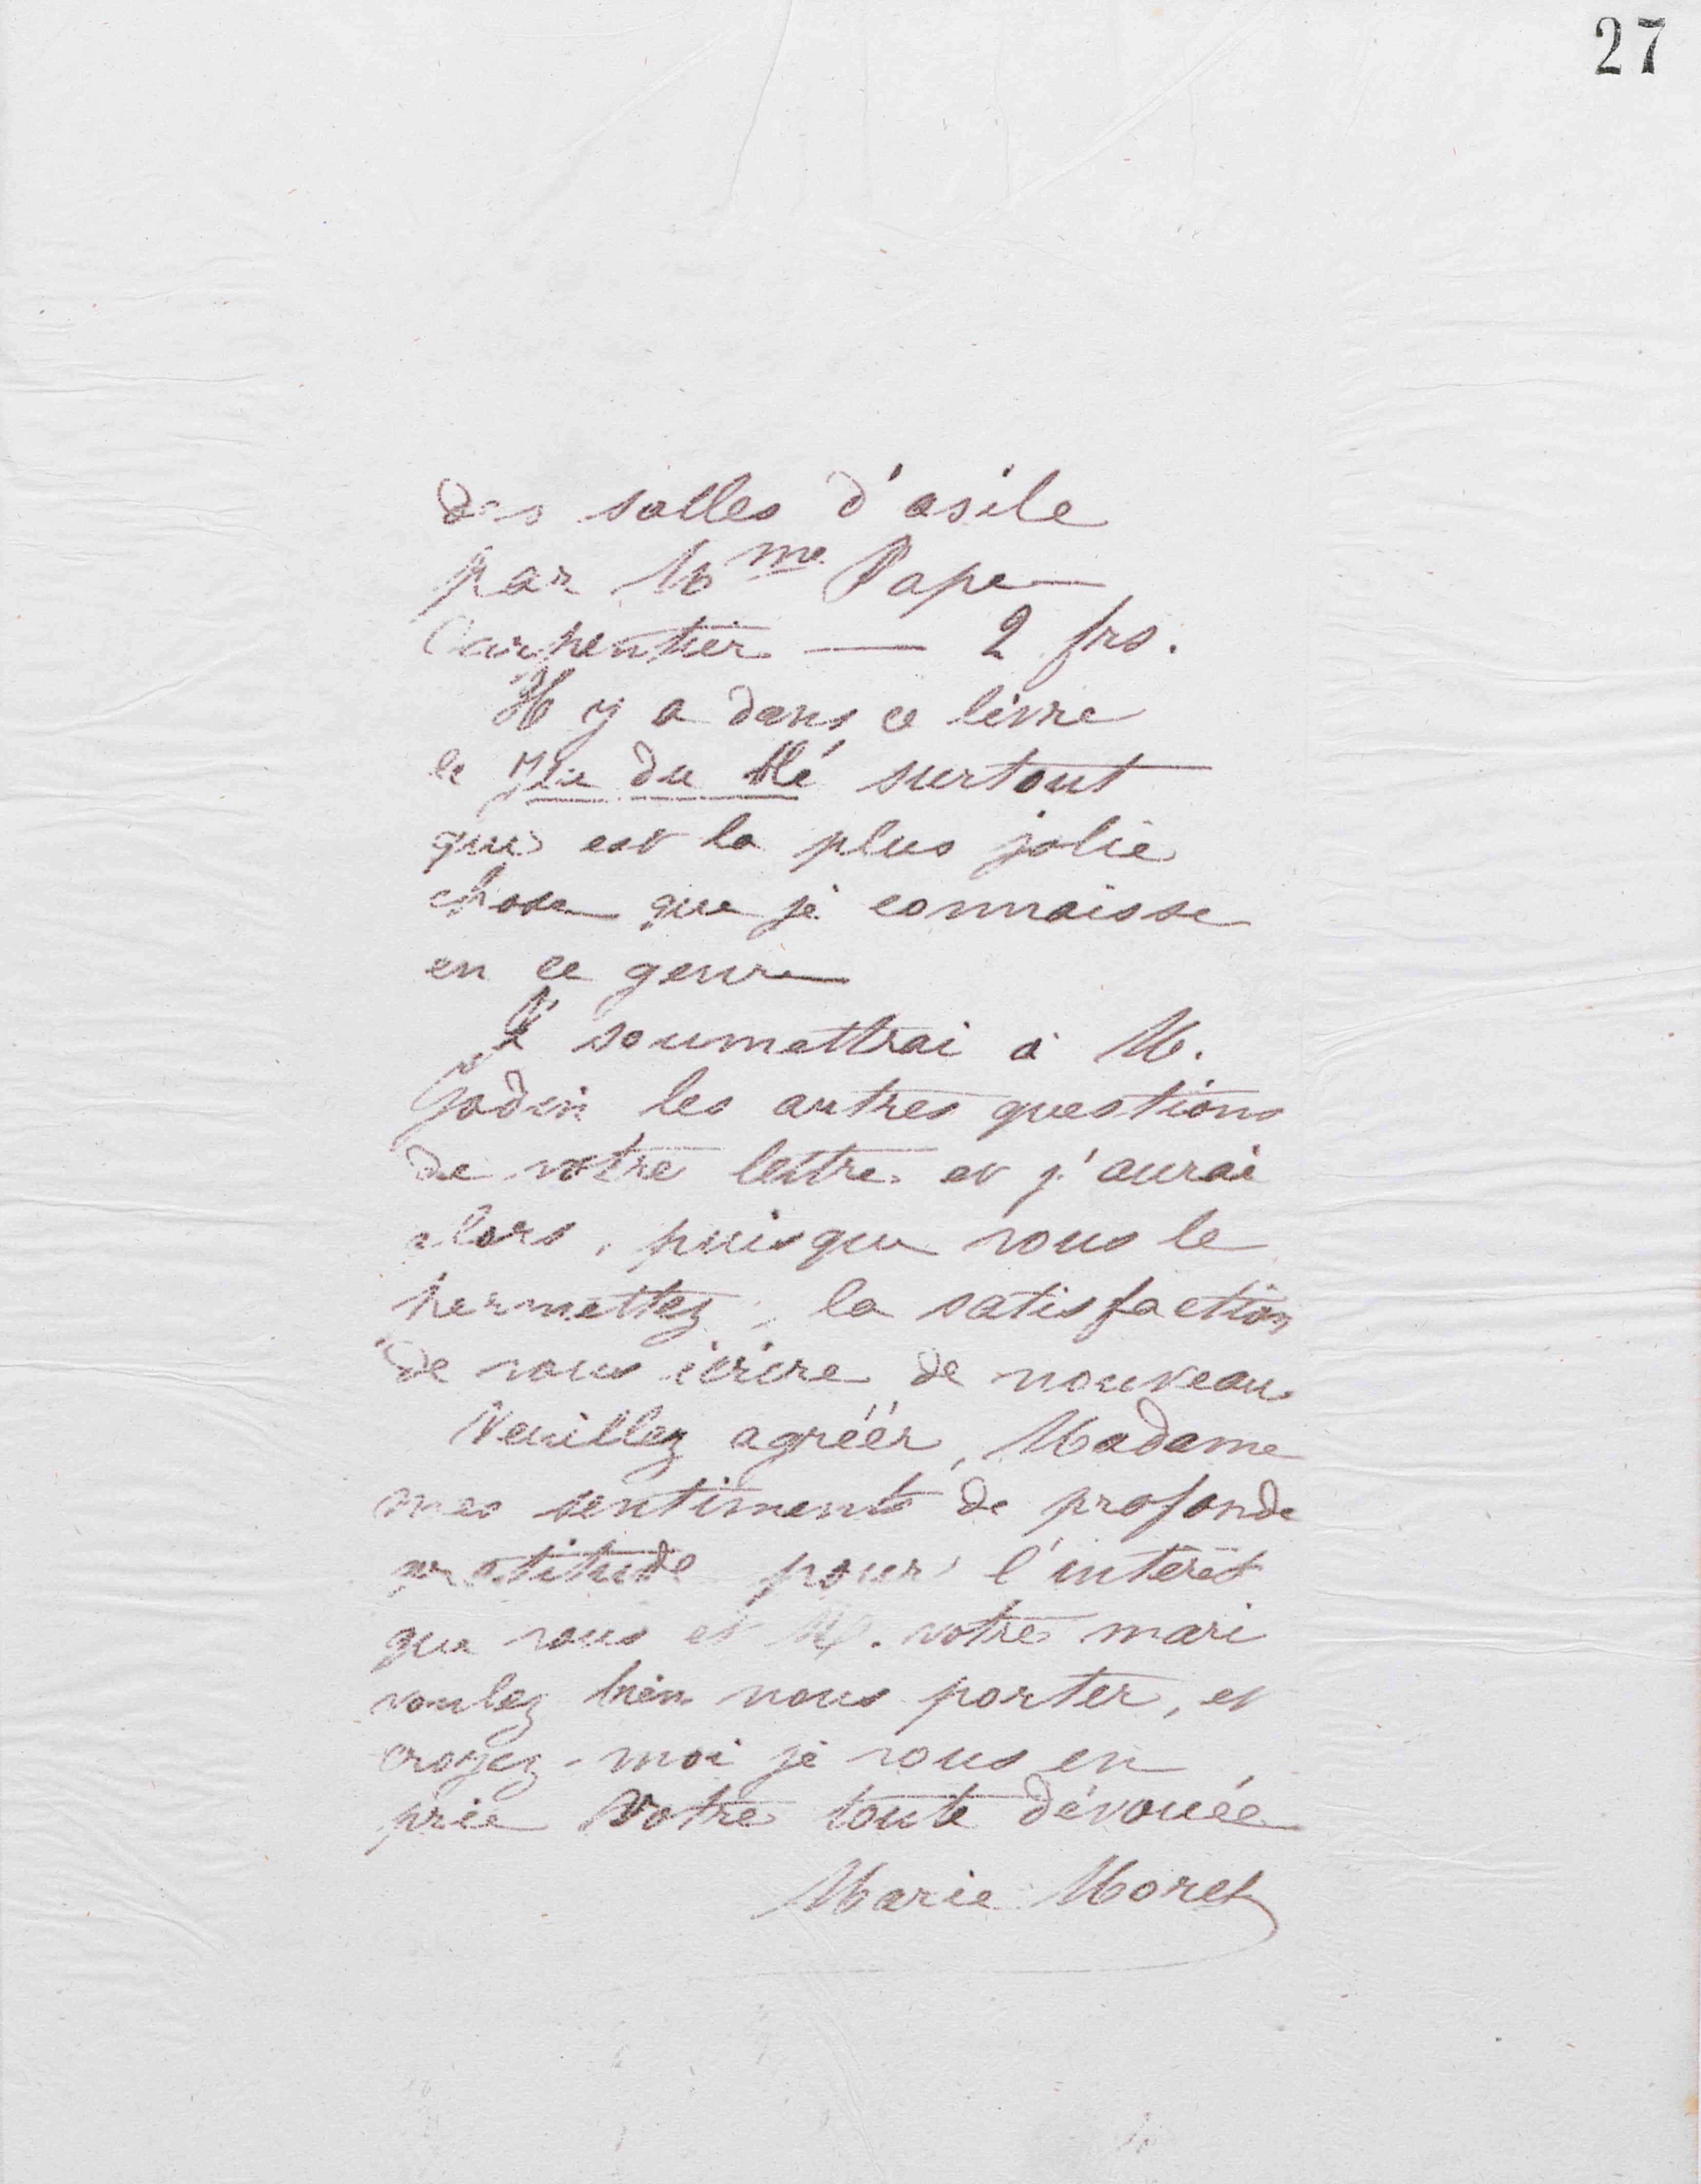 27
des salles d'asile
par Mme Pape
Carpentier — 2 frs.
Il y a dans ce livre
le Jeu du blé surtout
qui est la plus jolie
chose que je connaisse
en ce genre
Je soumettrai à M.
Godin les autres questions
de votre lettre et j'aurai
alors, puisque vous le
permettez, la satisfaction
de vous écrire de nouveau.
Veuillez agréér, Madame
mes sentiments de profonde
gratitude pour l'intérêt
que vous et M. votre mari
voulez bien nous porter, et
croyez-moi je vous en
prie Votre toute dévouée
Marie Moret